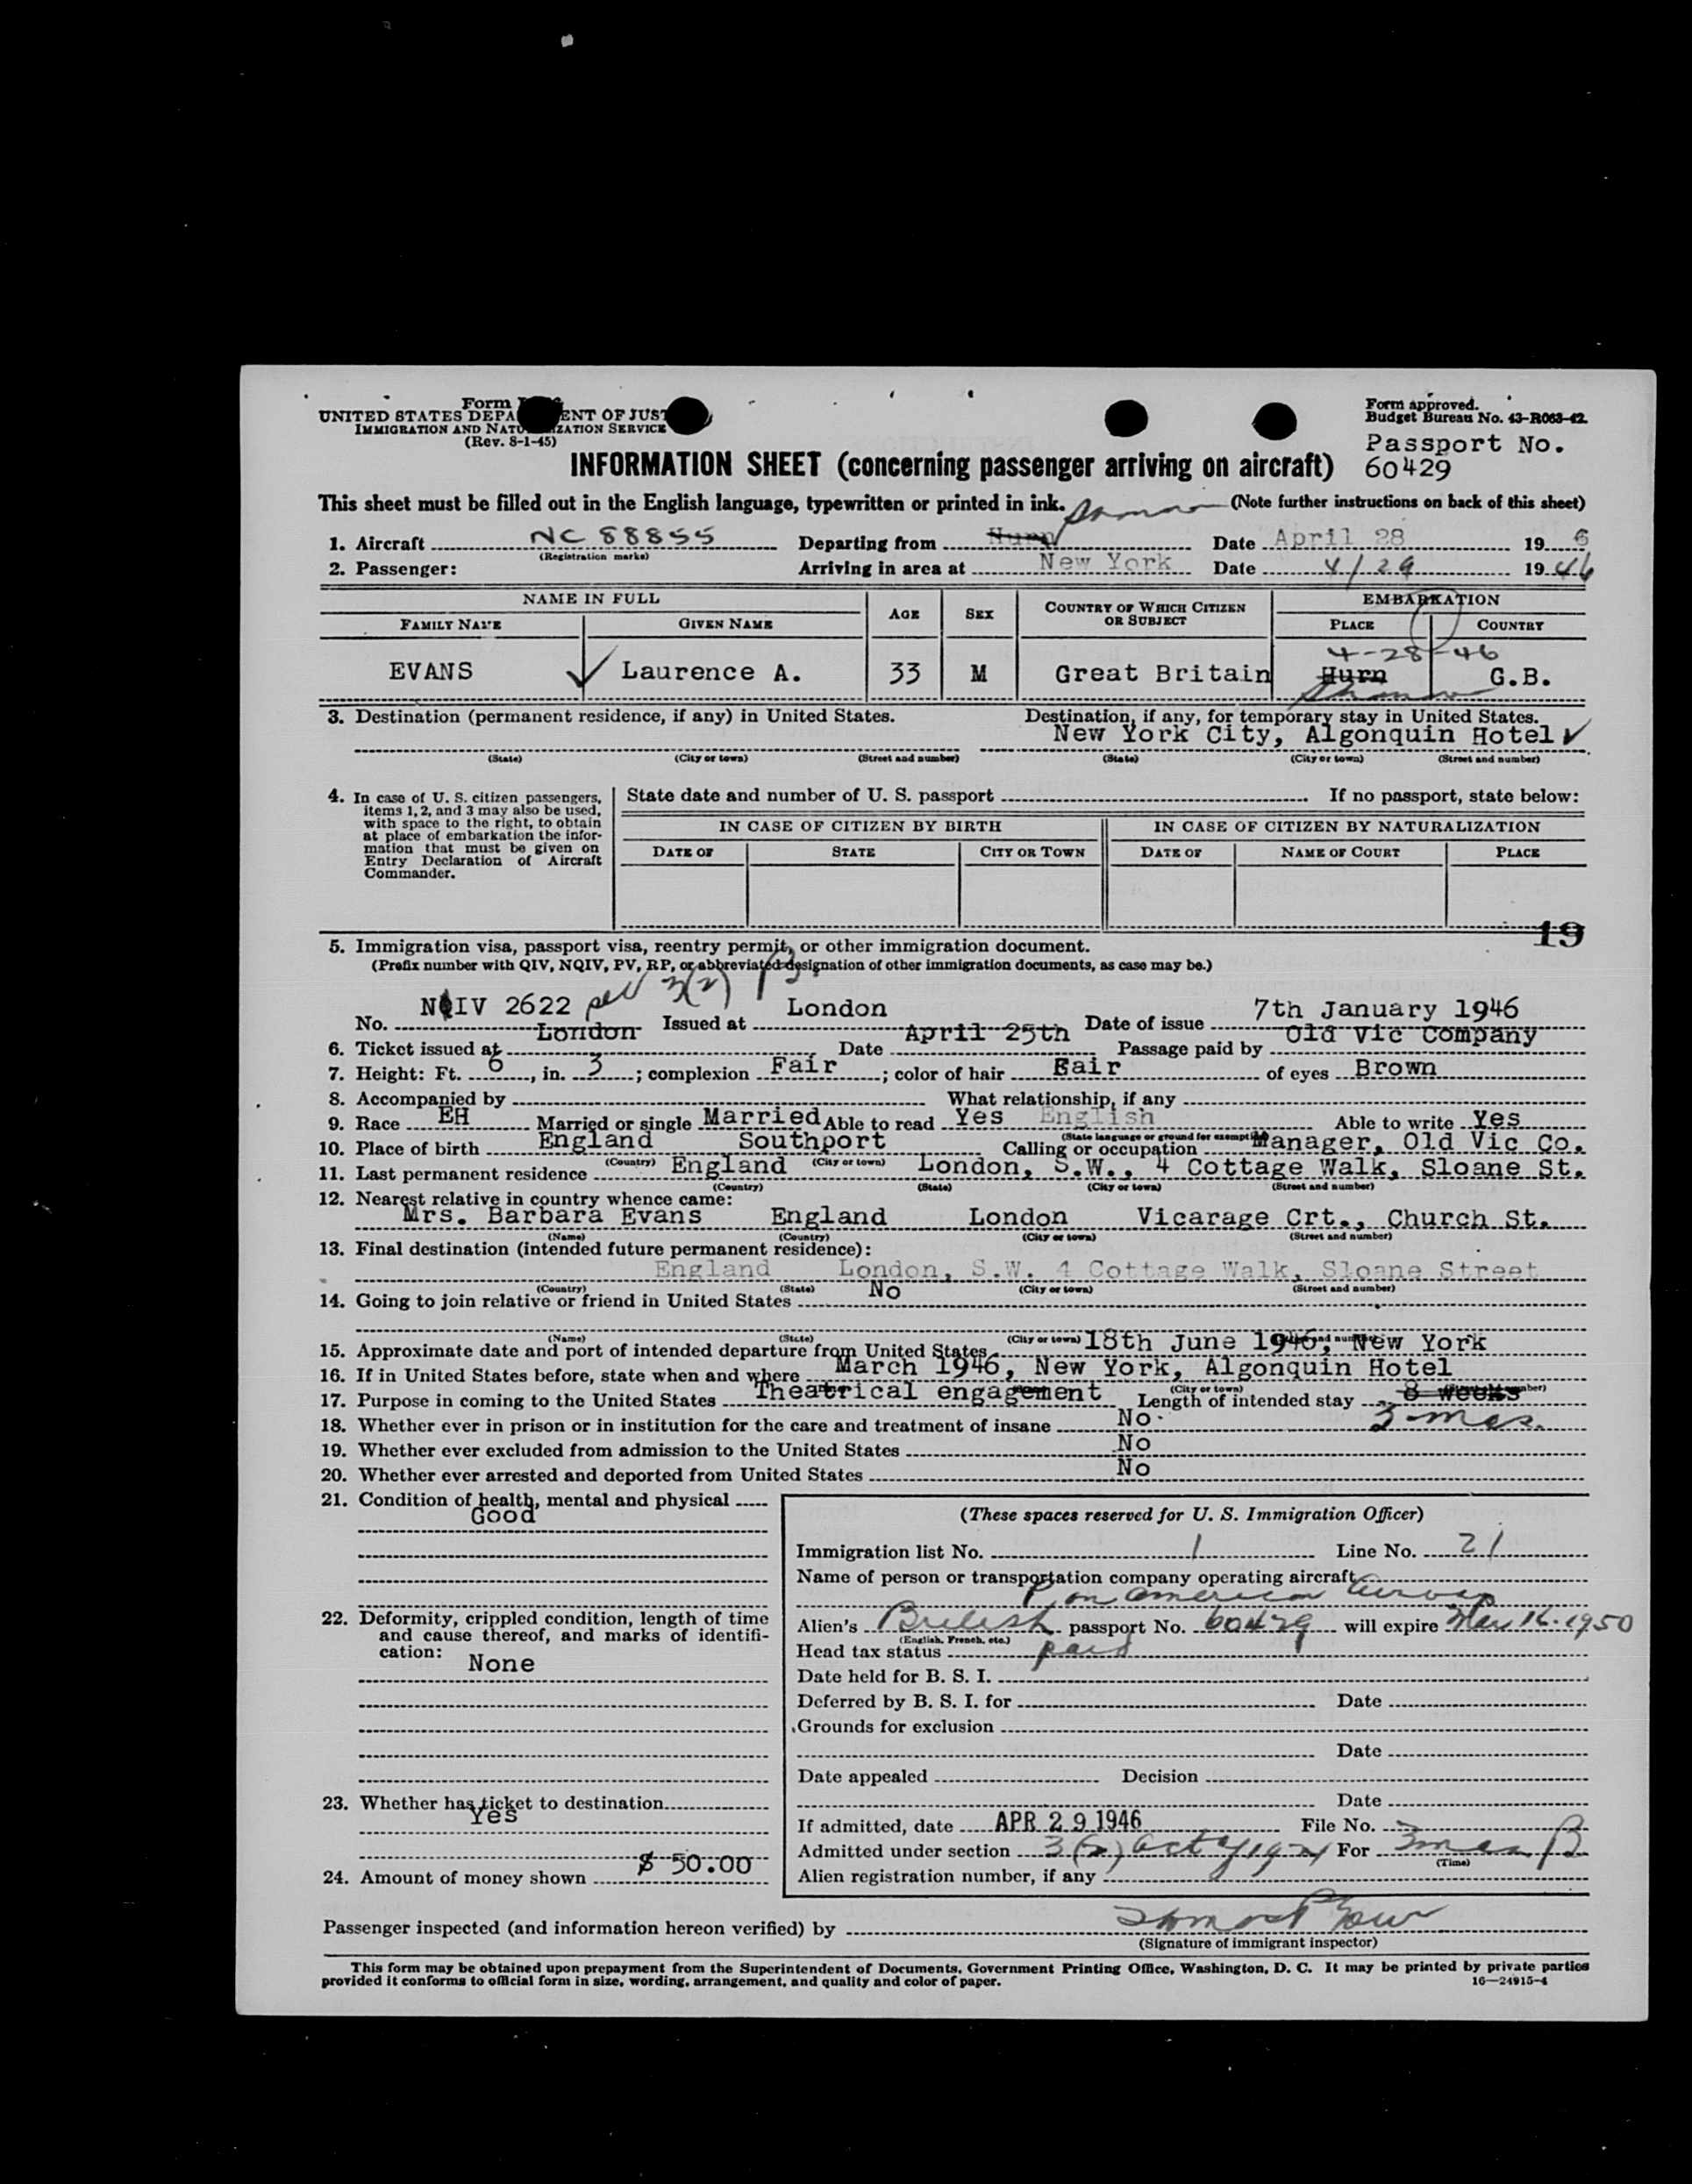 Form
UNITED STATES DEPA ENT OF JUST
IMMIGRATION AND NATU IZATION SERVICE
(Rev. 8-1-45)
Form approved.
Budget Bureau No. 43-R063-42.
Passport No.
60429
INFORMATION SHEET (concerning passenger arriving on aircraft)
This sheet must be filled out in the English language, typewritten or printed in ink. (Note further instructions on back of this sheet)
1. Aircraft NC 88855 Departing from Hurn Date April 28 19 6
(Registration marks)
2. Passenger: Arriving in area at New York Date 4/29 1946
NAME IN FULL AGE SEX COUNTRY OF WHICH CITIZEN OR SUBJECT EMBARKATION
FAMILY NAME GIVEN NAME PLACE COUNTRY
4-28-46
EVANS Laurence A. 33 M Great Britain Hurn G.B.
3. Destination (permanent residence, if any) in United States. Destination, if any, for temporary stay in United States.
New York City, Algonquin Hotel
(State) (City or town) (Street and number) (State) (City or town) (Street and number)
4. In case of U. S. citizen passengers, items 1, 2, and 3 may also be used, with space to the right, to obtain at place of embarkation the information that must be given on Entry Declaration of Aircraft Commander.
State date and number of U. S. passport If no passport, state below:
IN CASE OF CITIZEN BY BIRTH IN CASE OF CITIZEN BY NATURALIZATION
DATE OF STATE CITY OR TOWN DATE OF NAME OF COURT PLACE
19
5. Immigration visa, passport visa, reentry permit, or other immigration document.
(Prefix number with QIV, NQIV, PV, RP, or abbreviated designation of other immigration documents, as case may be.)
3(2)
No. NQIV 2622 Issued at London Date of issue 7th January 1946
6. Ticket issued at London Date April 25th Passage paid by Old Vic Company
7. Height: Ft. 6, in. 3; complexion Fair; color of hair Fair of eyes Brown
8. Accompanied by What relationship, if any
9. Race EH Married or single Married Able to read Yes English Able to write Yes
(State language or ground for exemption)
10. Place of birth England Southport Calling or occupation Manager, Old Vic Co.
(Country) (City or town)
11. Last permanent residence England London, S.W., 4 Cottage Walk, Sloane St.
(Country) (State) (City or town) (Street and number)
12. Nearest relative in country whence came:
Mrs. Barbara Evans England London Vicarage Crt., Church St.
(Name) (Country) (City or town) (Street and number)
13. Final destination (intended future permanent residence):
England London, S.W. 4 Cottage Walk, Sloane Street
(Country) (State) (City or town) (Street and number)
14. Going to join relative or friend in United States No
(Name) (State) (City or town)
15. Approximate date and port of intended departure from United States 18th June 1946, New York
16. If in United States before, state when and where March 1946, New York, Algonquin Hotel
(City or town)
17. Purpose in coming to the United States Theatrical engagement Length of intended stay 8 weeks
3 mos.
18. Whether ever in prison or in institution for the care and treatment of insane No
19. Whether ever excluded from admission to the United States No
20. Whether ever arrested and deported from United States No
21. Condition of health, mental and physical
Good
22. Deformity, crippled condition, length of time and cause thereof, and marks of identification:
None
23. Whether has ticket to destination
Yes
24. Amount of money shown $ 50.00
(These spaces reserved for U. S. Immigration Officer)
Immigration list No. 1 Line No. 21
Name of person or transportation company operating aircraft
Pan American Airways
Alien's British passport No. 60429 will expire Mar 16. 1950
(English, French, etc.)
Head tax status paid
Date held for B. S. I.
Deferred by B. S. I. for Date
Grounds for exclusion
Date
Date appealed Decision
Date
If admitted, date APR 29 1946 File No.
Admitted under section 3(2) Act of 1924 For 3 mos
(Time)
Alien registration number, if any
Passenger inspected (and information hereon verified) by
(Signature of immigrant inspector)
This form may be obtained upon prepayment from the Superintendent of Documents, Government Printing Office, Washington, D. C. It may be printed by private parties
provided it conforms to official form in size, wording, arrangement, and quality and color of paper. 16—24915-4